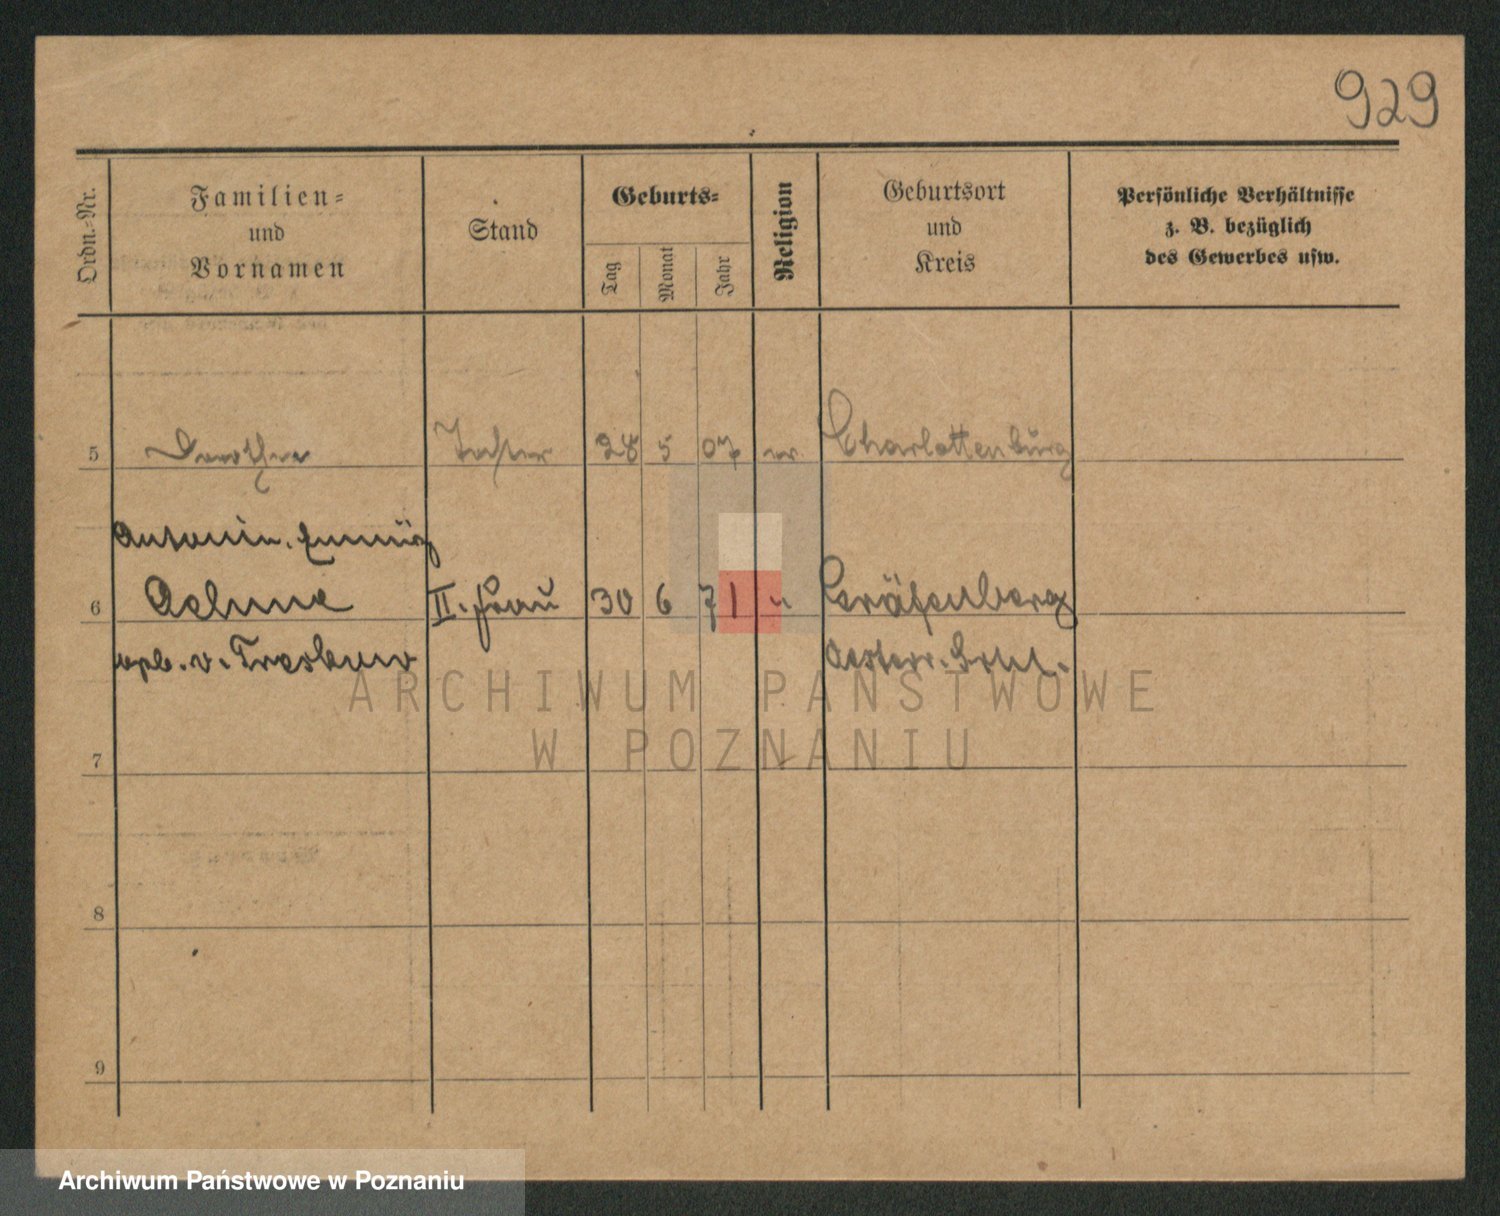 929
Ordn.-Nr.
Familien-
und
Vornamen
Stand
Geburts-
Tag
Monat
Jahr
Religion
Geburtsort
und
Kreis
Persönliche Verhältnisse
z. B. bezüglich
des Gewerbes usw.
5 Dorothea Tochter 28 5 07 ev. Charlottenburg
Antonin.
6 II. Frau 30 6 71 " Gräfenberg
geb. v. Treskow Oesterr.
7
8
9
ARCHIWUM PAŃSTWOWE
W POZNANIU
Archiwum Państwowe w Poznaniu